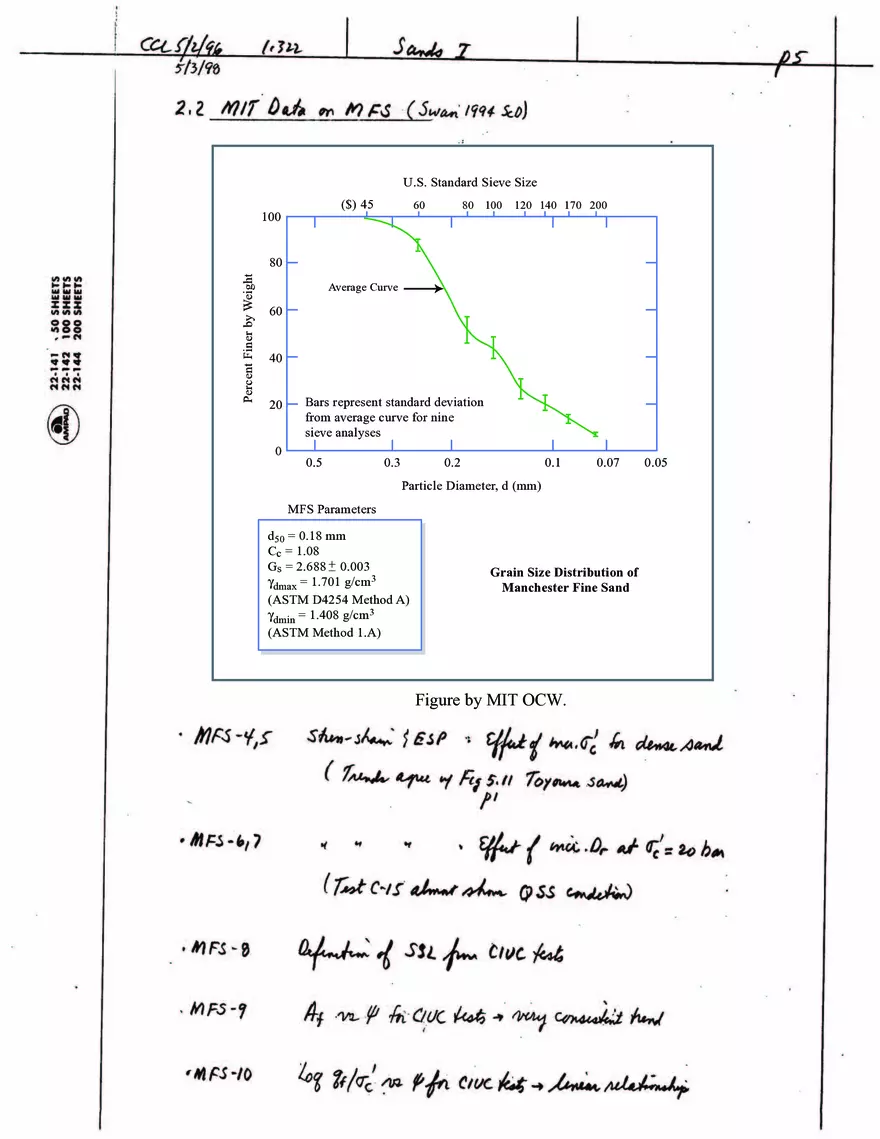 CCL 5/2/96 1.322 Sands I p5
5/3/98
2.2 MIT Data on MFS (Swan 1994 ScD)
U.S. Standard Sieve Size
($) 45 60 80 100 120 140 170 200
100
80
60
40
20
0
Percent Finer by Weight
Average Curve
Bars represent standard deviation
from average curve for nine
sieve analyses
0.5 0.3 0.2 0.1 0.07 0.05
Particle Diameter, d (mm)
MFS Parameters
d50 = 0.18 mm
Cc = 1.08
Gs = 2.688 ± 0.003
γdmax = 1.701 g/cm³
(ASTM D4254 Method A)
γdmin = 1.408 g/cm³
(ASTM Method 1.A)
Grain Size Distribution of
Manchester Fine Sand
Figure by MIT OCW.
22-141 50 SHEETS
22-142 100 SHEETS
22-144 200 SHEETS
AMPAD
• MFS-4,5 Stress-strain & ESP : Effect of incr. σ'c for dense sand
(Trends agree w/ Fig 5.11 Toyoura sand)
p1
• MFS-6,7 " " " : Effect of incr. Dr at σ'c = 20 bar
(Test C-15 almost shows QSS condition)
• MFS-8 Definition of SSL from CIUC tests
• MFS-9 Af vs ψ for CIUC tests → very consistent trend
• MFS-10 Log qf/σ'c vs ψ for CIUC tests → linear relationship